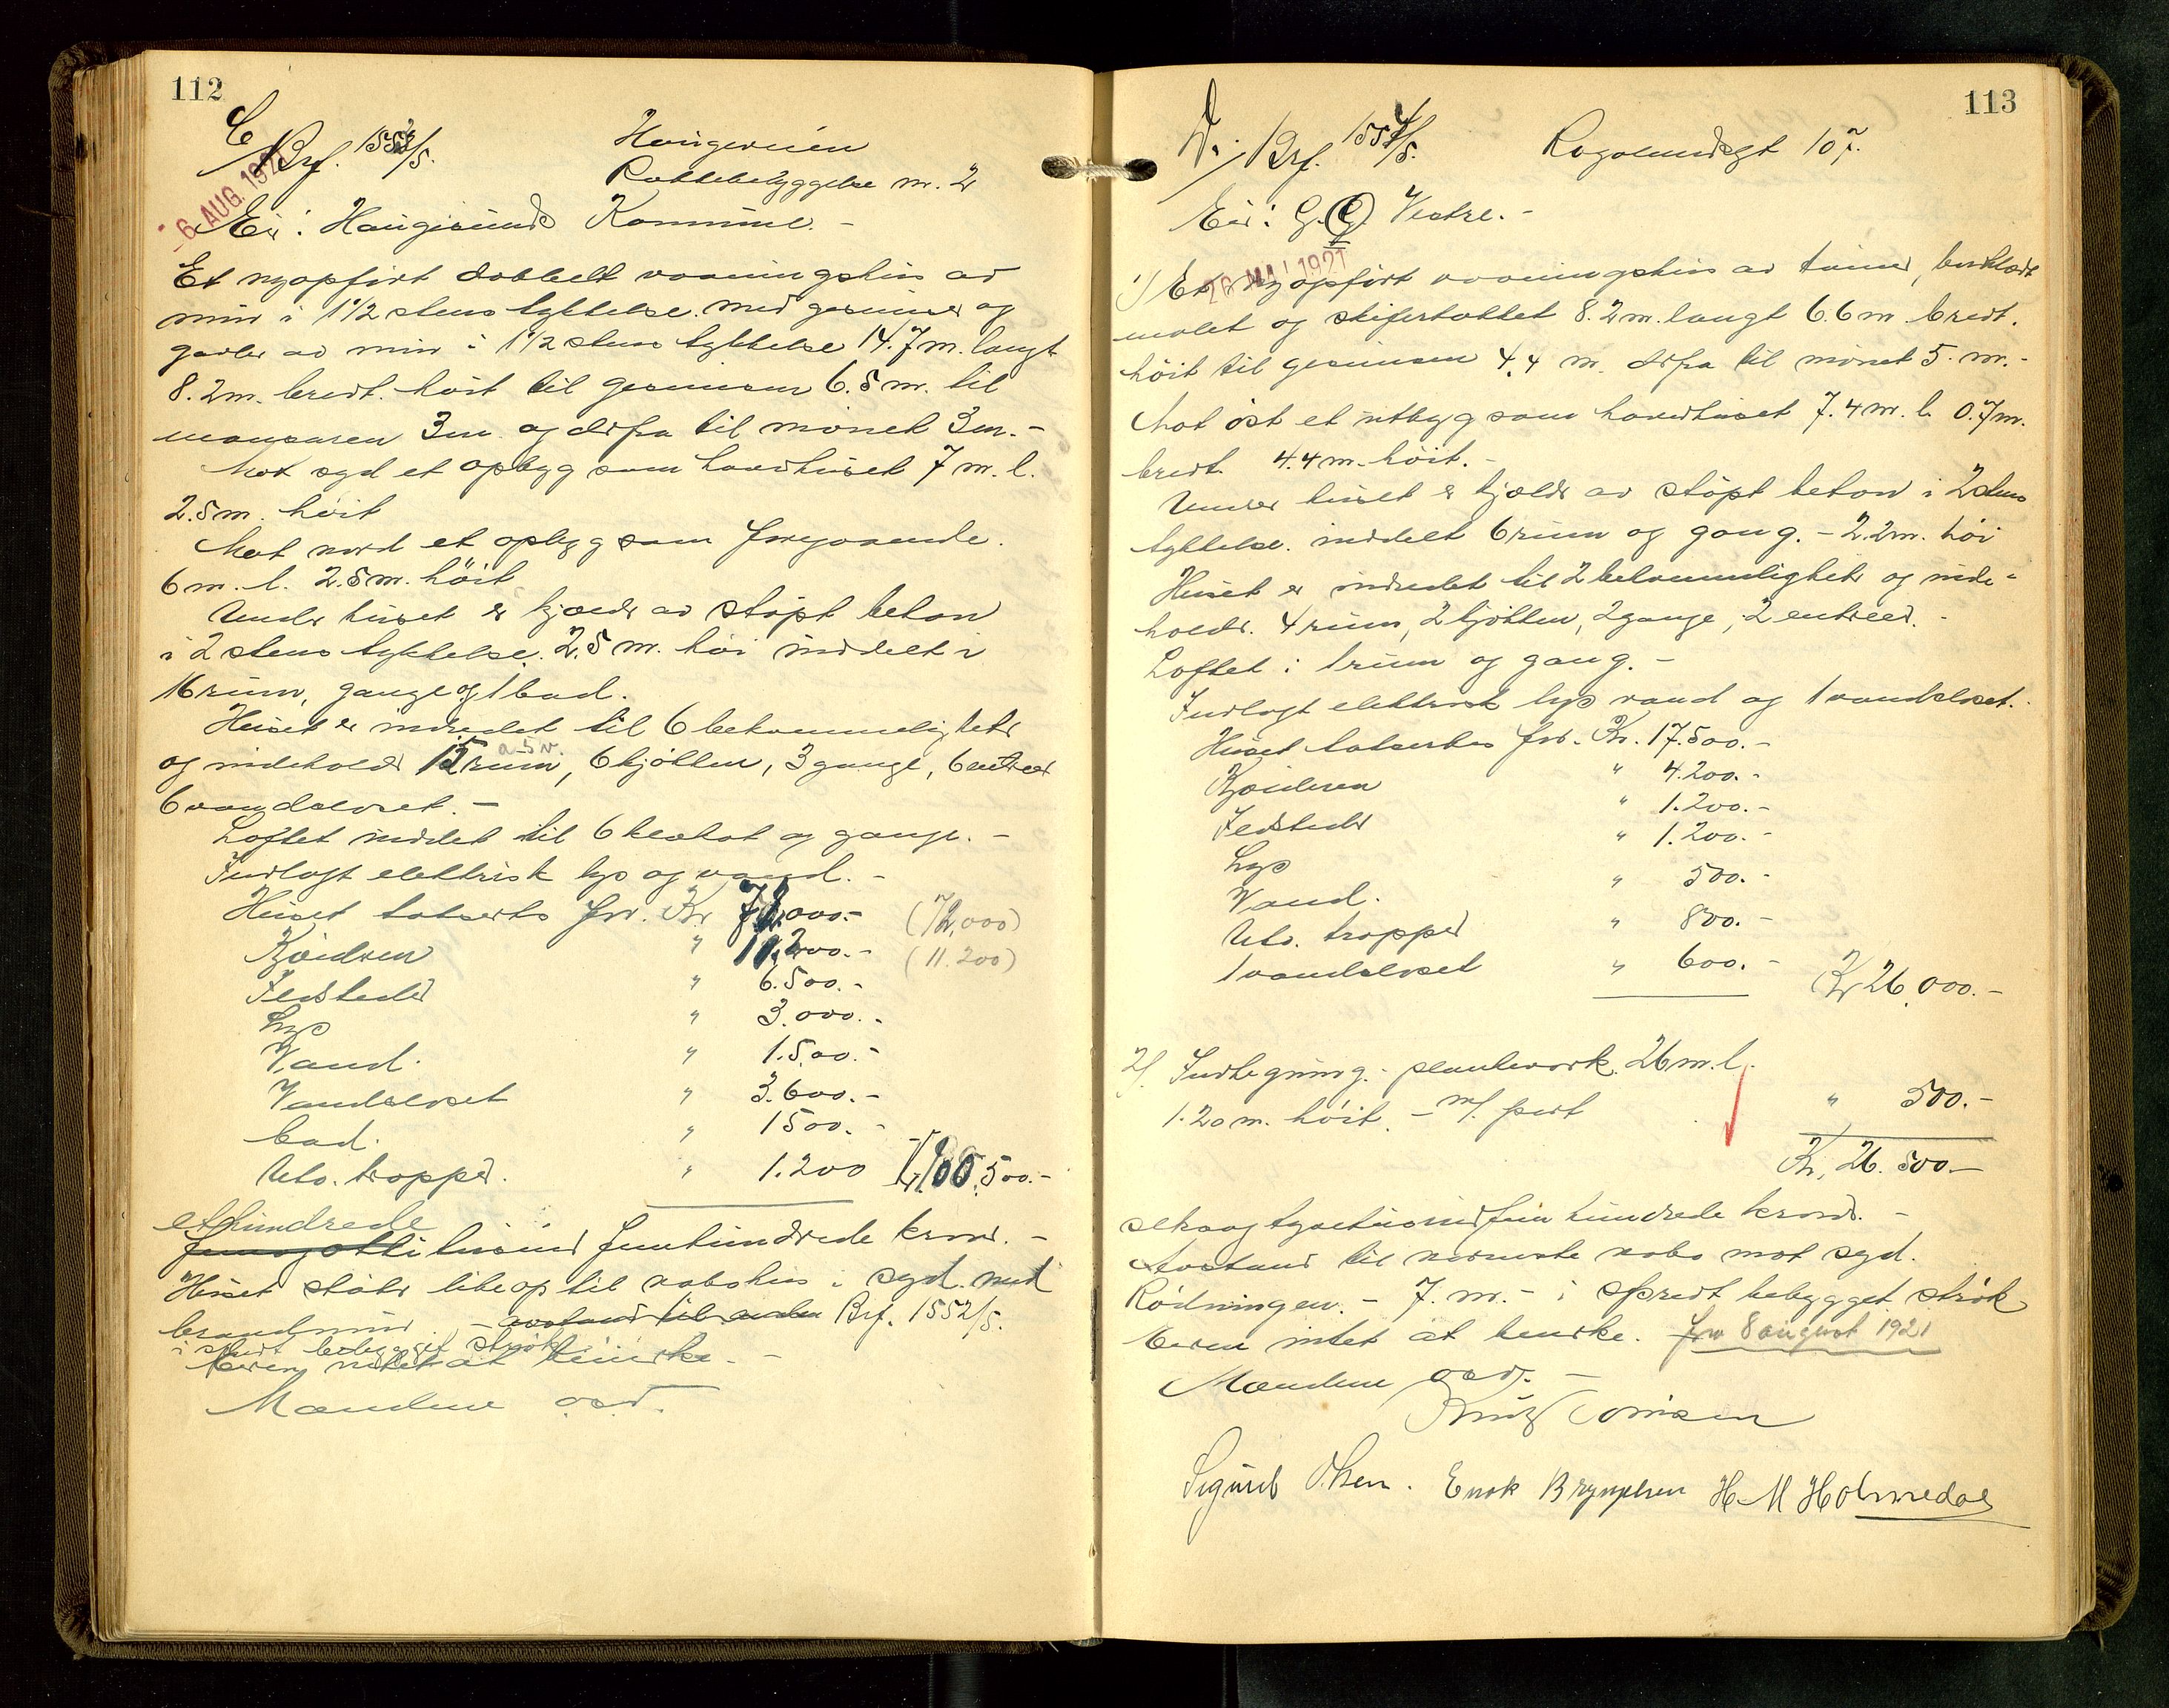 112
C/ Brf. 1553/5. Haugeveien
Rækkebebyggelse nr. 2
- 6 AUG. 1921
Eier: Haugesunds Kommune. -
Et nyopført dobbelt vaaningshus av
mur i 1 1/2 stens tykkelse med gesimser og
gavler av mur i 1 1/2 stens tykkelse 14.7 m. langt
8.2 m. bredt. høit til gesimsen 6.5 m. til
mansaren 3 m. og derfra til mønet 3 m. -
Mot syd et opbygg som hovedhuset 7 m. l.
2.5 m. høit
Mot nord et opbygg som foregaaende.
6 m. l. 2.5 m. høit
Under huset er kjælder av støpt beton
i 2 stens tykkelse. 2.5 m. høi inddelt i
16 rum, gange og 1 bad.
Huset er indredet til 6 bekvemmeligheter
og indeholder 15 rum, 6 kjøkken, 3 gange, 6 entreer
6 vandcloset. -
Loftet inddelt til 6 kvistr og gange. -
Indlagt elektrisk lys og vand. -
Huset taksertes for. Kr. 72.000.- (72,000)
Kjælderen " 11.200.- (11.200)
Ildsteder " 6.500.-
Lys " 3.000.-
Vand. " 1.500.-
Vandcloset " 3.600.-
bad. " 1500.-
Utv. trapper. " 1.200 Kr. 100.500.-
ethundrede
femogotti tusind femhundrede kroner. -
Huset støter like op til nabohus i syd med
brandmur - avstand til anden Brf. 1552/5.
i spredt bebygget strøk
Eieren intet at bemerke. -
Mændene ovd.
113
D. / Brf. 1554/5. Rogalandsgt 107.
Eier: G. G. Vestre. -
26 MAI 1921
1) Et nyopført vaaningshus av tømmer, bordklædt
malet og skifertækket 8.2 m. langt 6.6 m. bredt.
høit til gesimsen 4.4 m. derfra til mønet 5. m. -
Mot øst et utbygg som hovedhuset 7.4 m. l. 0.7 m.
bredt 4.4 m. høit. -
Under huset er kjælder av støpt beton i 2 stens
tykkelse. inddelt 6 rum og gang. - 2.2 m. høi
Huset er indredet til 2 bekvemmeligheter og inde-
holder. 4 rum, 2 kjøkken, 2 gange, 2 entreer. -
Loftet i 1 rum og gang. -
Indlagt elektrisk lys vand og 1 vandcloset.
Huset taksertes for. Kr. 17.500.-
Kjælderen " 4.200.-
Ildsteder " 1.200.-
Lys " 1.200.-
Vand. " 500.-
Utv. trapper " 800.-
1 vandcloset " 600.- Kr 26.000.-
2/. Indhegning. - plankeverk. 26 m. l.
1.20 m. høit. - m/. port " 500.-
Kr. 26.500.-
seksogtyvetusindfemhundrede kroner. -
Avstand til nærmeste nabo mot syd.
Rødningen. - 7. m. - i spredt bebygget strøk
Eieren intet at bemerke. fra 8 august 1921
Mændene ovd. -
Sigurd Olsen. Enok Brynjelsen H M Holmedal